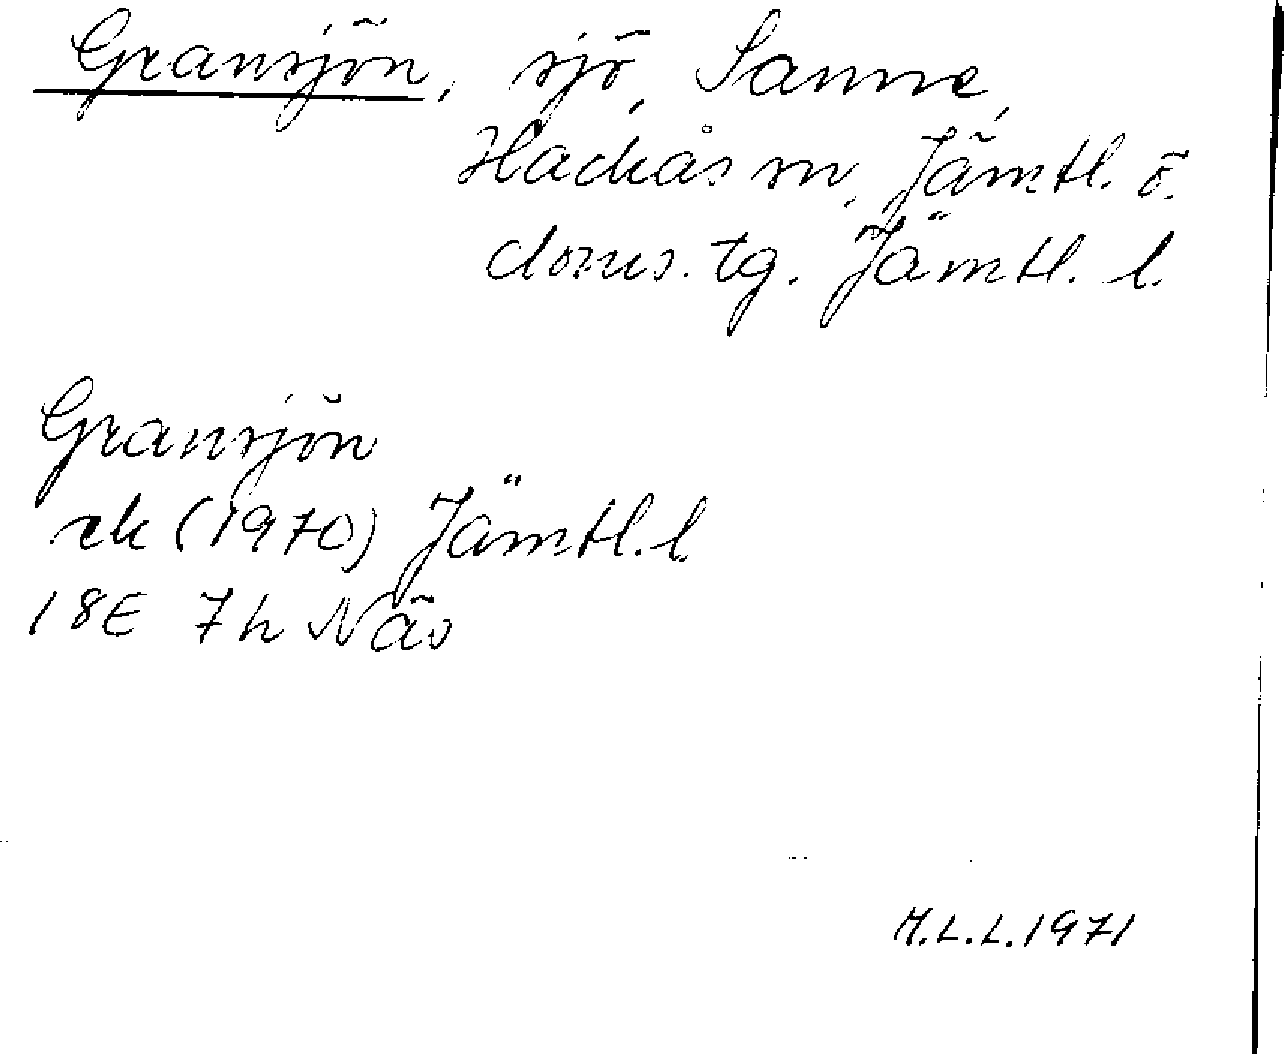 Gransjön, sjö, Sanne,
Hackås sn, Jämtl. ö.
doms. tg. Jämtl. l.
Gransjön
ek (1970) Jämtl. l.
18E 7h Näs
M.L.L. 1971